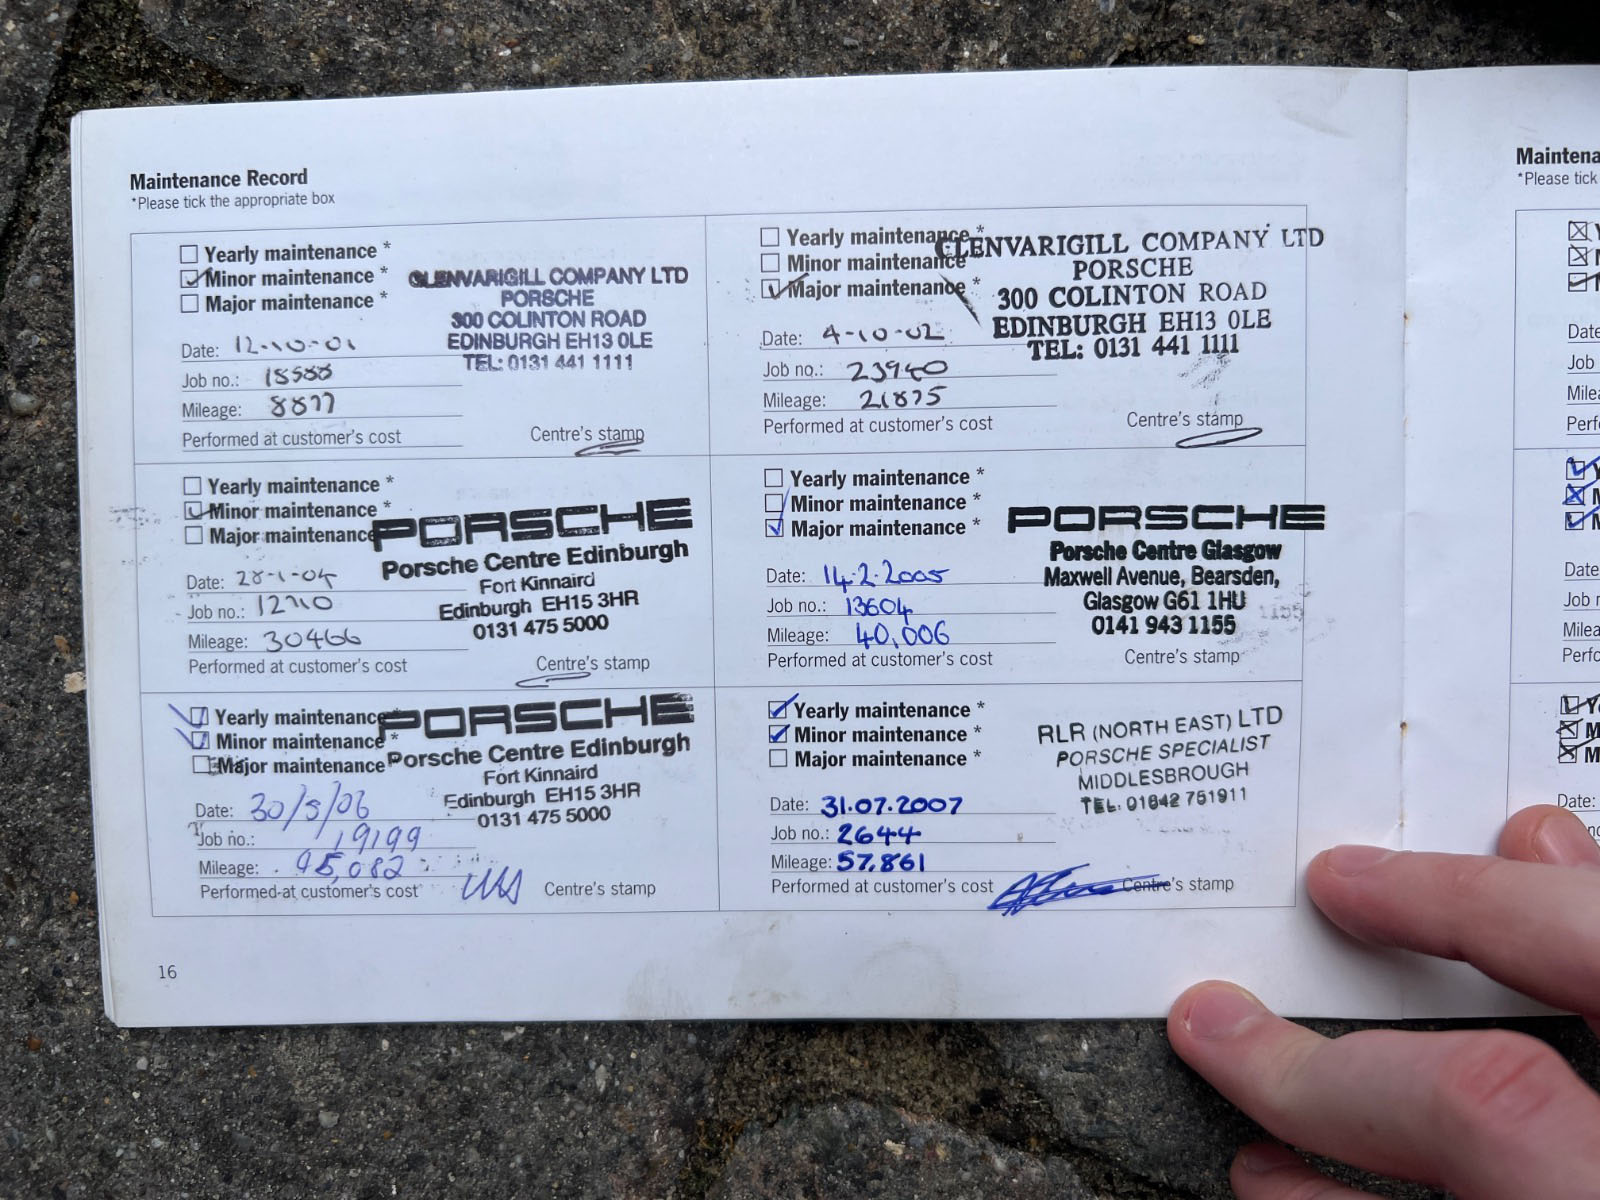 Maintenance Record
*Please tick the appropriate box
Yearly maintenance *
Minor maintenance *
Major maintenance *
GLENVARIGILL COMPANY LTD
PORSCHE
300 COLINTON ROAD
EDINBURGH EH13 0LE
TEL: 0131 441 1111
Date: 12-10-01
Job no.: 18588
Mileage: 8877
Performed at customer's cost
Centre's stamp
Yearly maintenance *
Minor maintenance
Major maintenance *
GLENVARIGILL COMPANY LTD
PORSCHE
300 COLINTON ROAD
EDINBURGH EH13 0LE
TEL: 0131 441 1111
Date: 4-10-02
Job no.: 23940
Mileage: 21875
Performed at customer's cost
Centre's stamp
Yearly maintenance *
Minor maintenance *
Major maintenance
PORSCHE
Porsche Centre Edinburgh
Fort Kinnaird
Edinburgh EH15 3HR
0131 475 5000
Date: 28-1-04
Job no.: 12710
Mileage: 30466
Performed at customer's cost
Centre's stamp
Yearly maintenance *
Minor maintenance *
Major maintenance *
PORSCHE
Porsche Centre Glasgow
Maxwell Avenue, Bearsden,
Glasgow G61 1HU
0141 943 1155
1155
Date: 14.2.2005
Job no.: 13604
Mileage: 40,006
Performed at customer's cost
Centre's stamp
Yearly maintenance
Minor maintenance *
Major maintenance
PORSCHE
Porsche Centre Edinburgh
Fort Kinnaird
Edinburgh EH15 3HR
0131 475 5000
Date: 30/5/06
Job no.: 19199
Mileage:
Performed at customer's cost
Centre's stamp
Yearly maintenance *
Minor maintenance *
Major maintenance *
RLR (NORTH EAST) LTD
PORSCHE SPECIALIST
MIDDLESBROUGH
TEL: 01642 751911
Date: 31.07.2007
Job no.: 2644
Mileage: 57,861
Performed at customer's cost
Centre's stamp
16
Maintena
*Please tick
Y
M
Date
Job
Milea
Perf
Y
M
M
Date
Job n
Milea
Perfo
Y
M
M
Date: